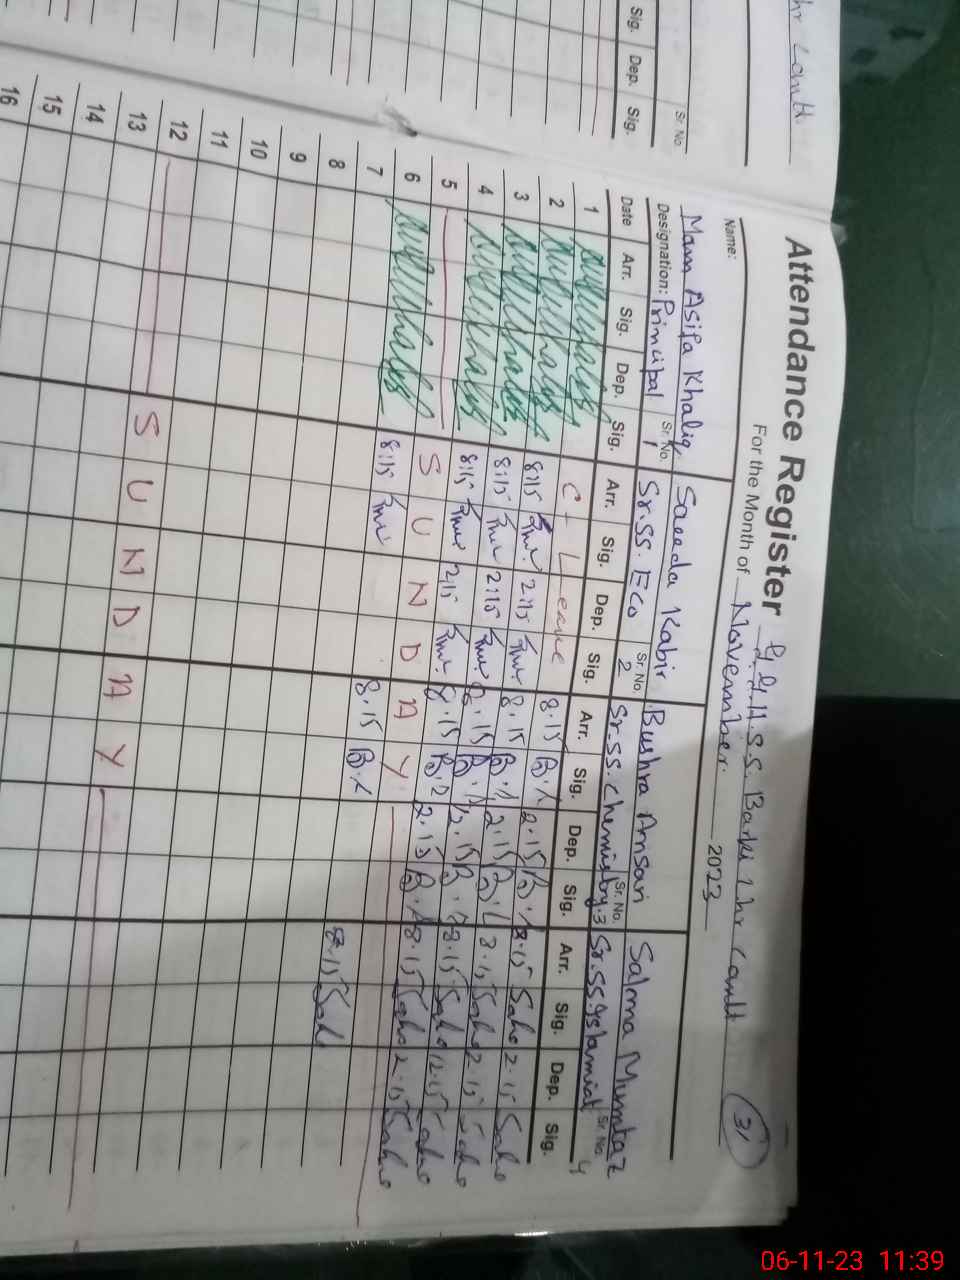 hr Cantt.
Sr. No.
Sig. Dep. Sig.
31
Attendance Register G.G.H.S.S. Barki Lhr Cantt
For the Month of November. 2023
Name:
Mam Asifa Khaliq Saeeda Kabir Bushra Ansari Salma Mumtaz
Designation: Principal Sr. No. 1 Sr.SS. Eco Sr. No. 2 Sr.SS. Chemistry. Sr. No. 3 Sr.SS. Islamiat Sr. No. 4
Date Arr. Sig. Dep. Sig. Arr. Sig. Dep. Sig. Arr. Sig. Dep. Sig. Arr. Sig. Dep. Sig.
1 C - Leave 8.15 2.15 8.15 2.15
2 8:15 2:15 8.15 2.15 8.15 2.15
3 8:15 2:15 8.15 12.15 8.15 12.15
4 8:15 2:15 8.15 2.15 8.15 2.15
5 S U N D A Y
6 8:15 8.15 8.15
7
8
9
10
11
12 S U N D A Y
13
14
15
16
06-11-23 11:39